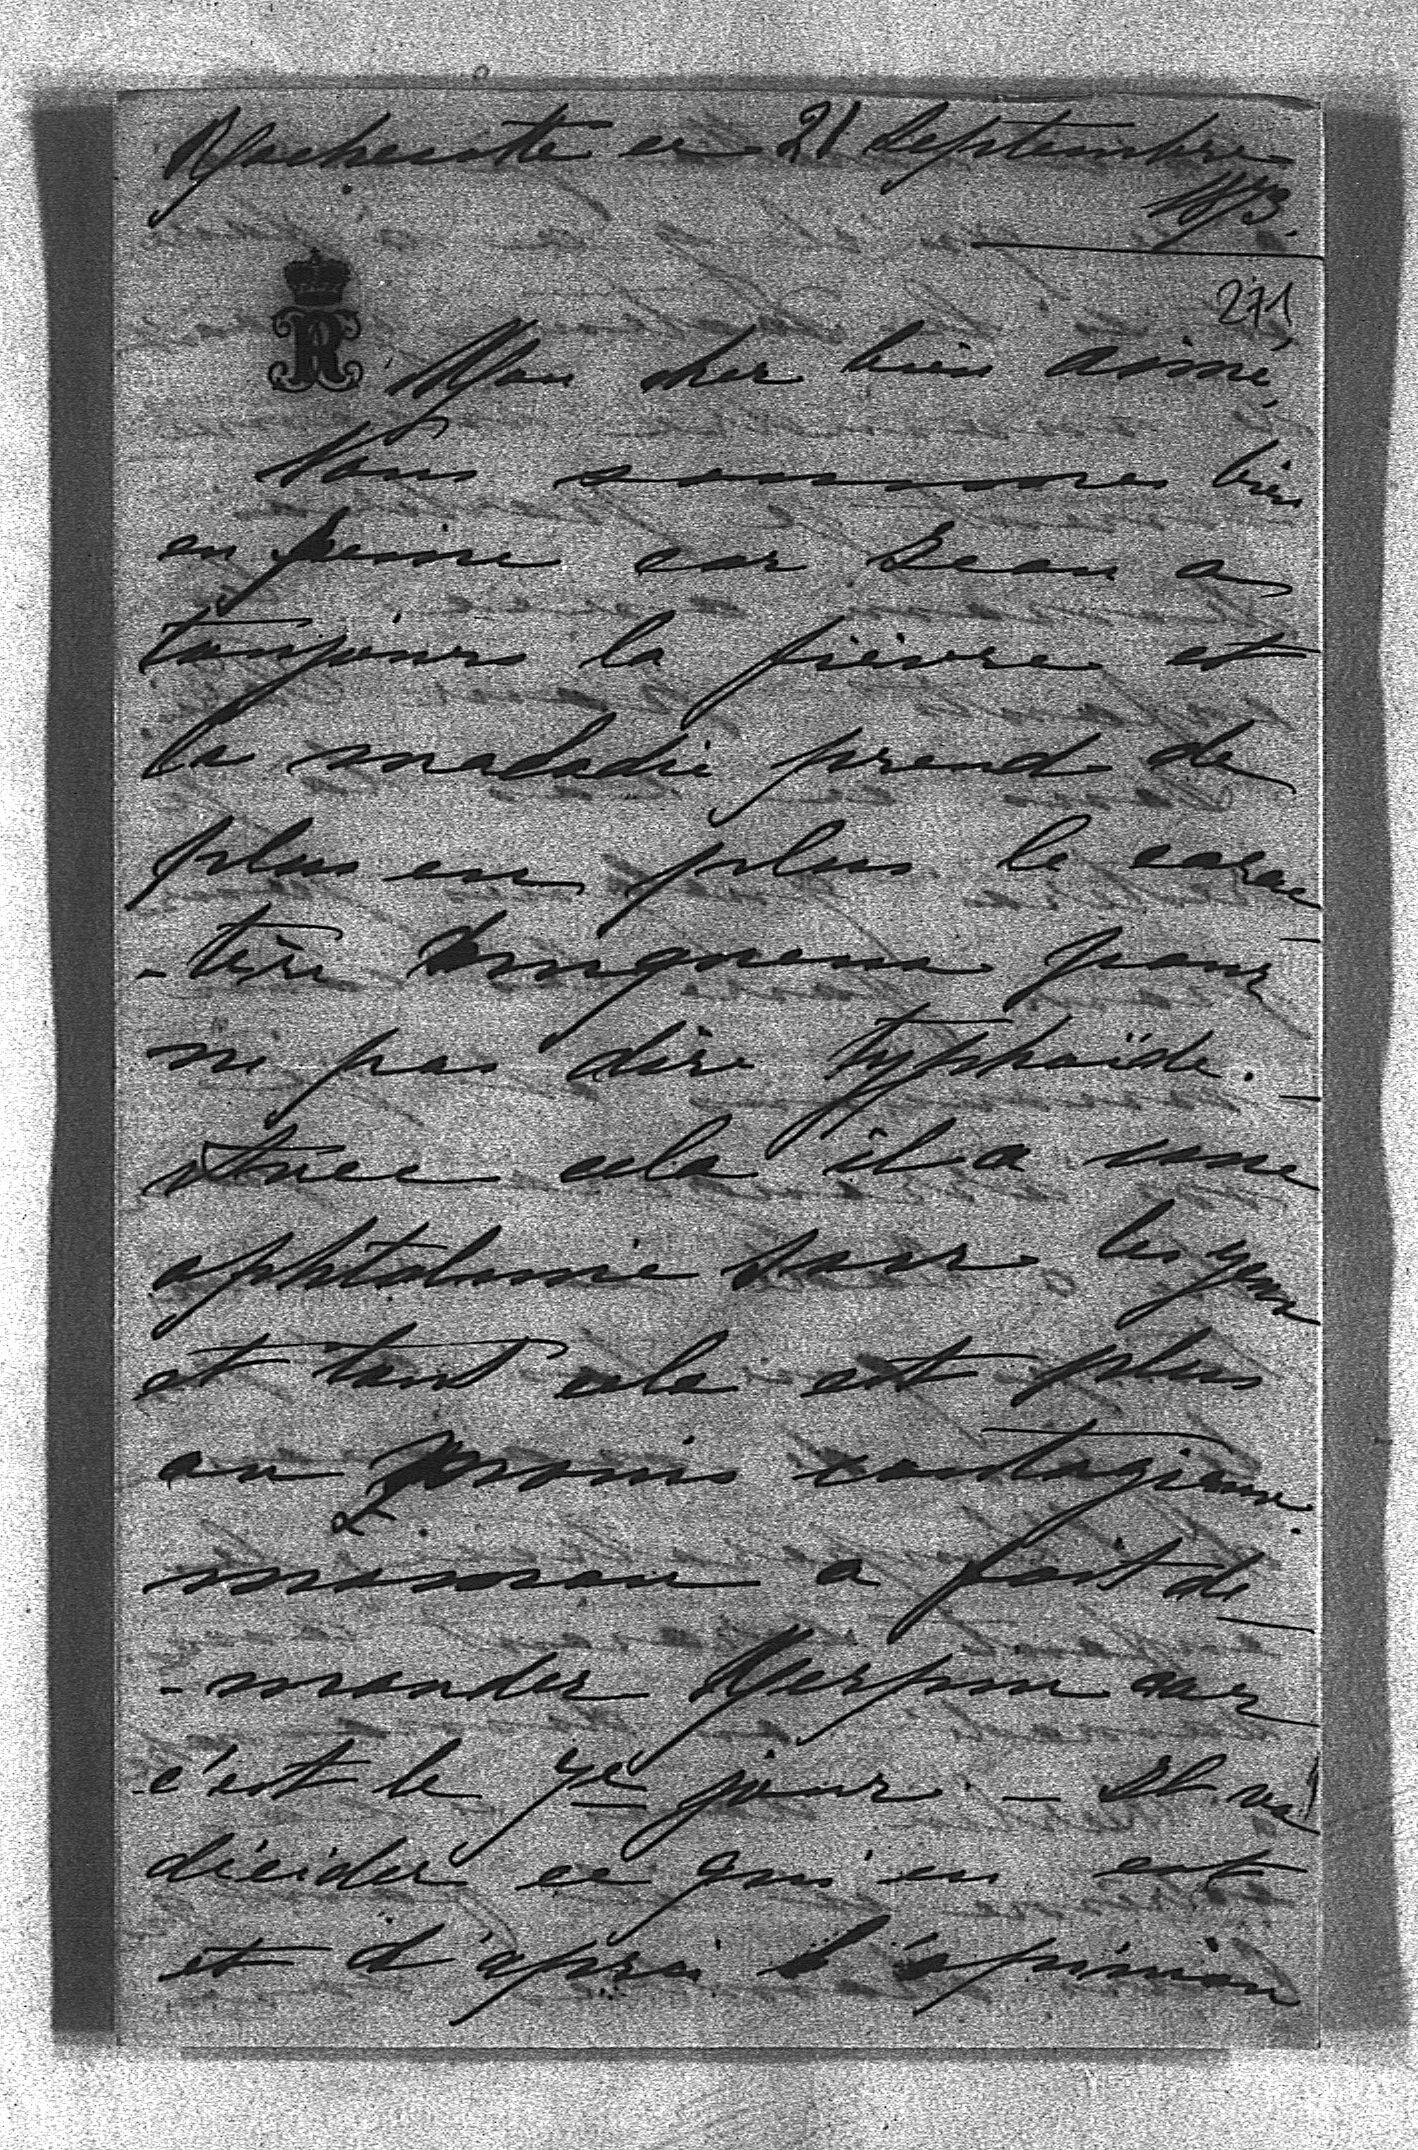 ce 21 Septembre
1873.
271
Mon cher bien aimé,
Nous sommes bien
en peine car Jean a
toujours la fièvre et
la maladie prend de
plus en plus le carac
-tère muqueux pour
ne pas dire typhoïde.
Avec cela il a une
ophtalmie sur les yeux
et tout cela est plus
ou moins contagieux.
maman a fait de
-mander car
c'est le 7e jour – Il va
décider ce qui en est
et d'après l'opinion